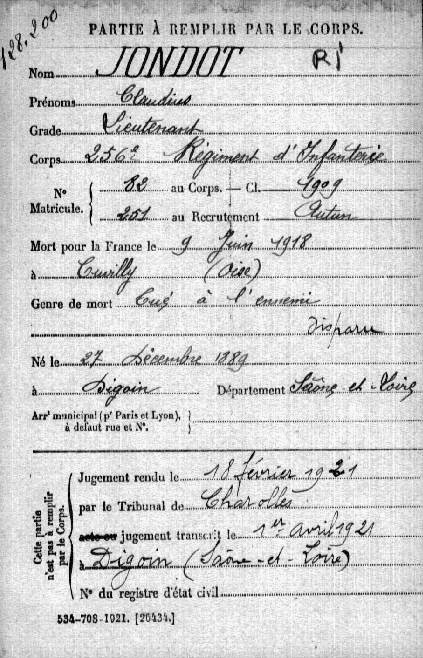 128.200
PARTIE À REMPLIR PAR LE CORPS.
Nom JONDOT RI
Prénoms Claudius
Grade Lieutenant
Corps 256e Régiment d'Infanterie
N° Matricule. { 82 au Corps. — Cl. 1909
251 au Recrutement Autun
Mort pour la France le 9 Juin 1918
à Cuvilly (Oise)
Genre de mort Tué à l'ennemi
disparu
Né le 27 Décembre 1889
à Digoin Département Saône-et-Loire
Arrt municipal (pr Paris et Lyon), à défaut rue et N°. }
Cette partie n'est pas à remplir par le Corps.
Jugement rendu le 18 février 1921
par le Tribunal de Charolles
acte ou jugement transcrit le 1er avril 1921
à Digoin (Saône-et-Loire)
N° du registre d'état civil
534-708-1921. [26434.]